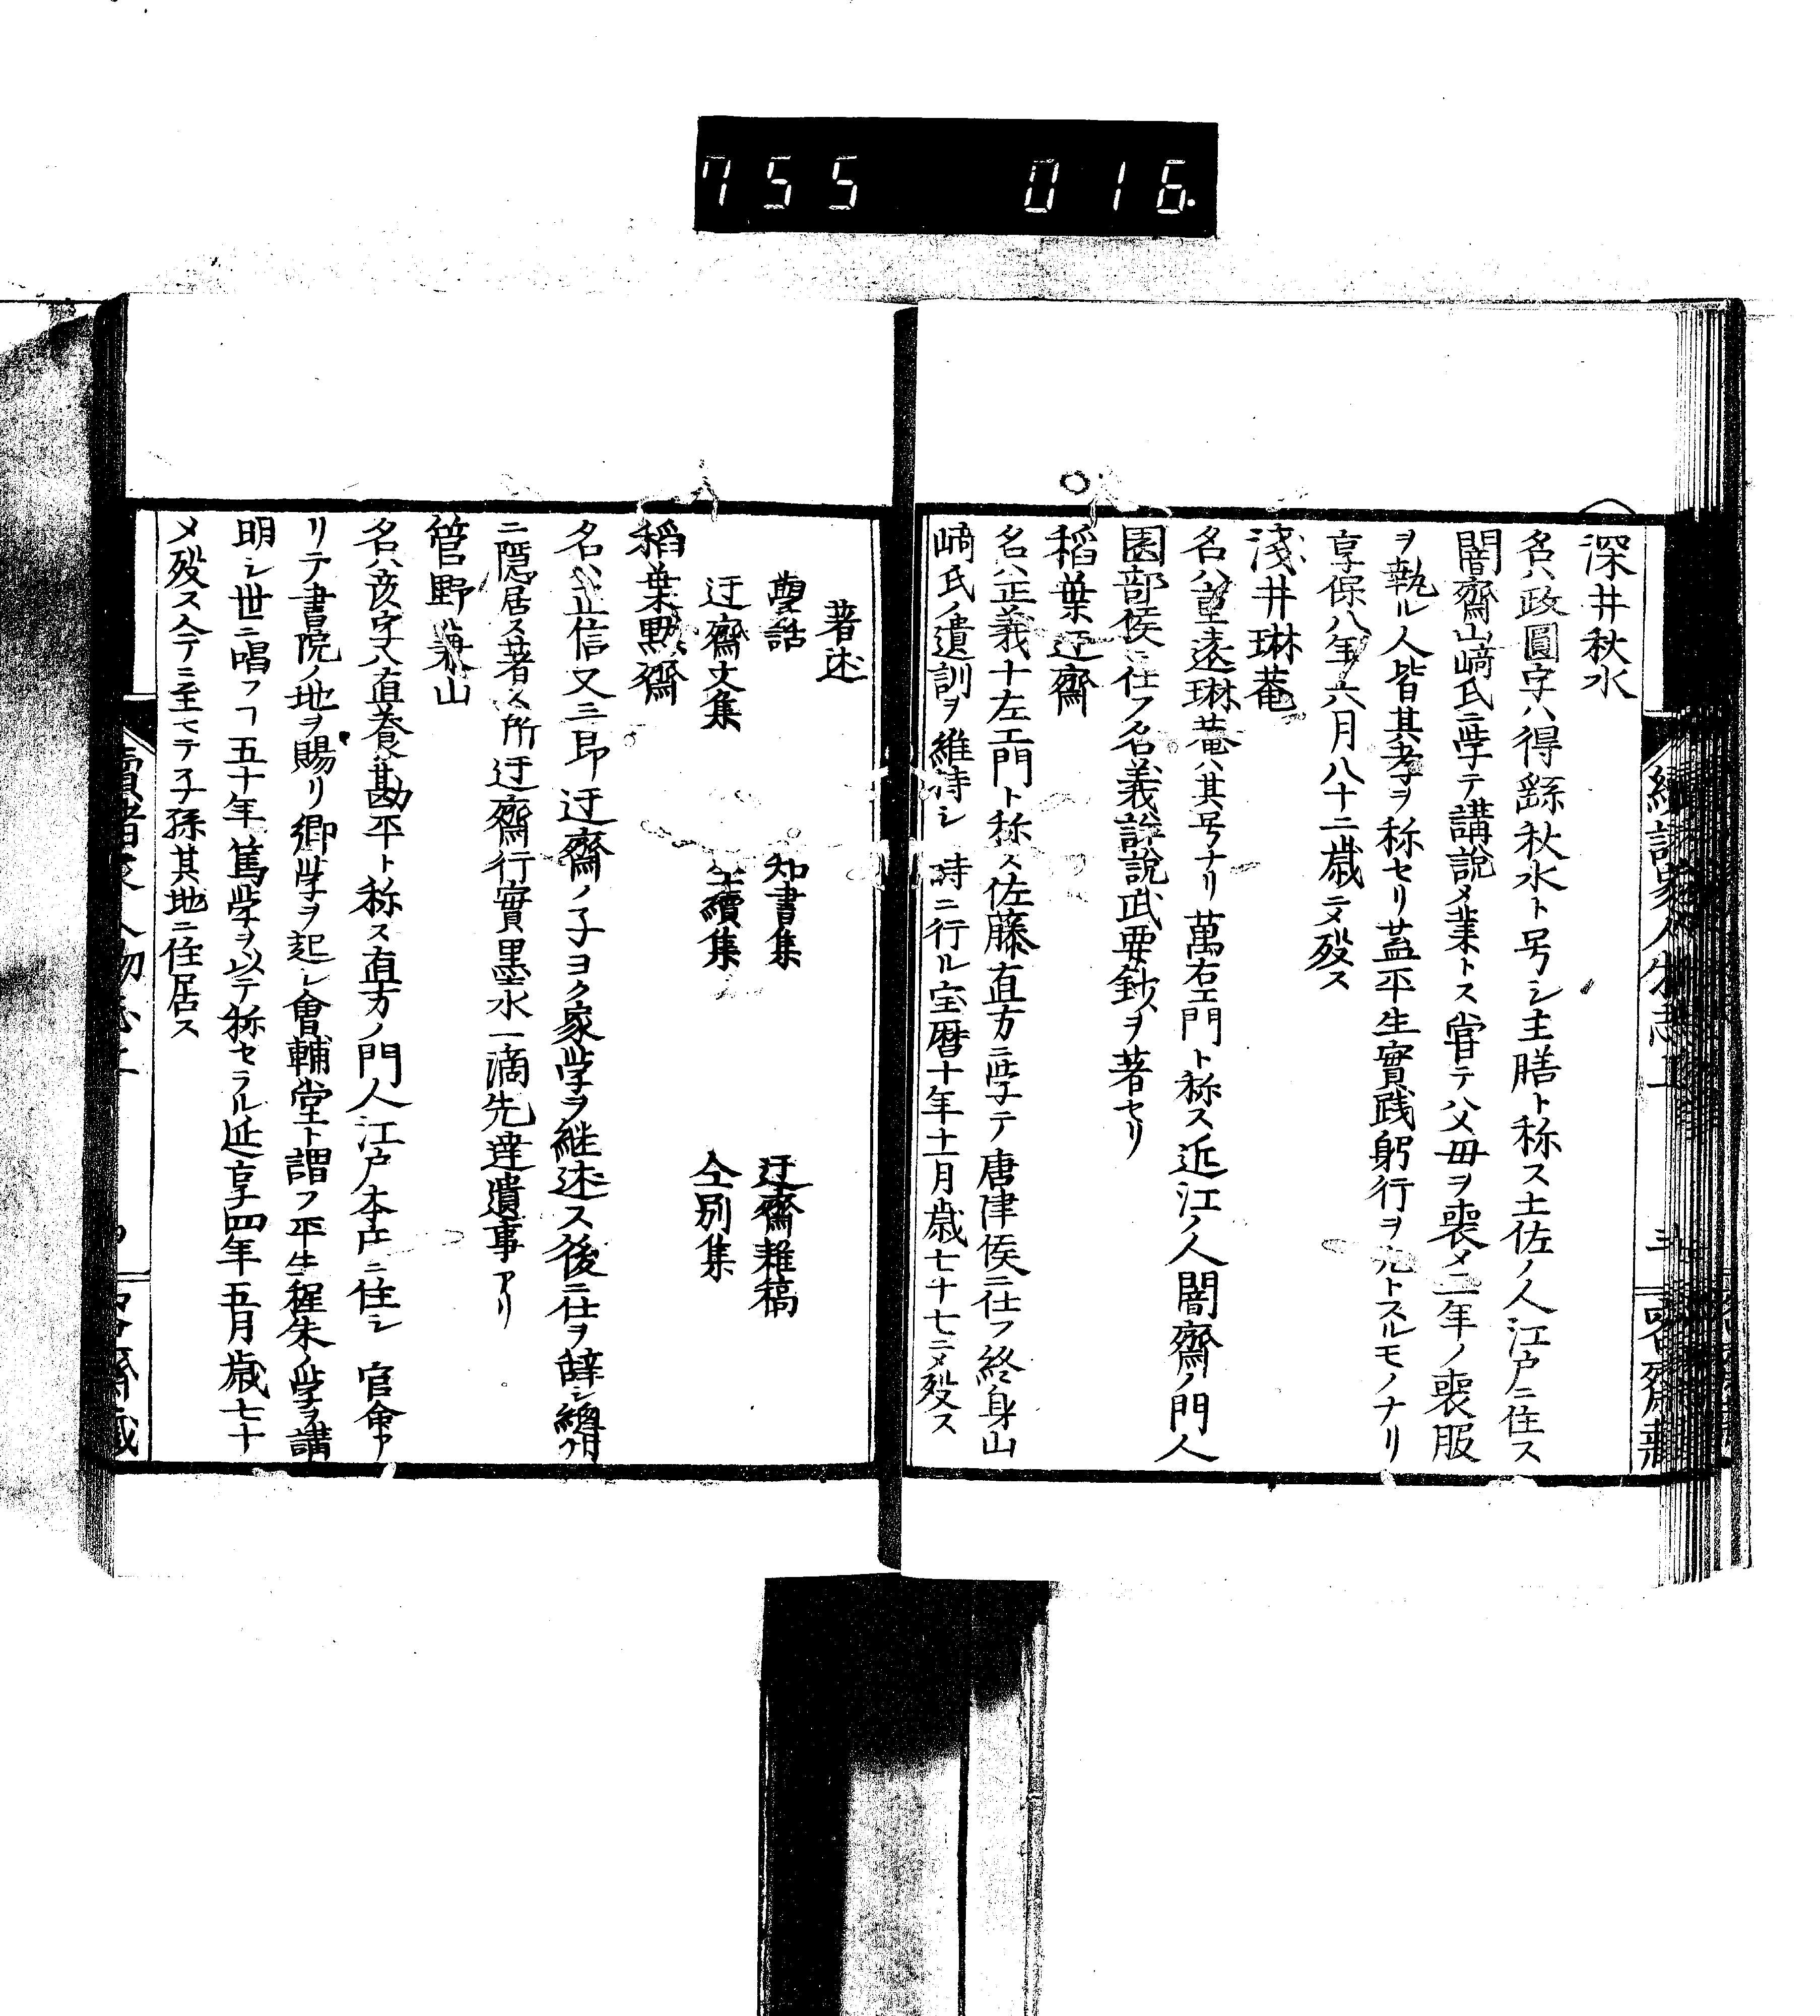 755 016.
深井秋水
名ハ政圓字ハ得繇秋水ト号シ主膳ト称ス土佐ノ人江戸ニ住ス
闇齋山﨑氏ニ學テ講説メ業トス甞テ父母ヲ喪メ三年ノ喪服
ヲ執ル人皆其孝ヲ称セリ葢平生實践躬行ヲ先トスルモノナリ
享保八年六月八十二歳ニメ殁ス
淺井琳菴
名ハ重遠琳菴ハ其号ナリ萬右エ門ト称ス近江ノ人闇齋ノ門人
園部侯ニ仕フ名義詳説武要鈔ヲ著セリ
稻葉迂齋
名ハ正義十左エ門ト称ス佐藤直方ニ學テ唐津侯ニ仕フ終身山
﨑氏ノ遺訓ヲ維持シ時ニ行ル宝暦十年十一月歳七十七ニメ殁ス
著述
學話 知書集 迂齋雜稿
迂齋文集 仝續集 仝別集
稻葉黙齋
名ハ正信又三郎迂齋ノ子ヨク家學ヲ継述ス後ニ仕ヲ辞シ總州
ニ隱居ス著ス所迂齋行實墨水一滴先達遺事アリ
管野兼山
名ハ亥字ハ直養勘平ト称ス直方ノ門人江戸本庄ニ住シ官命ア
リテ書院ノ地ヲ賜リ郷學ヲ起シ會輔堂ト謂フ平生程朱ノ學ヲ講
明シ世ニ唱フヿ五十年篤學ヲ以テ称セラル延享四年五月歳七十
メ殁ス今ニ至マテ子孫其地ニ住居ス